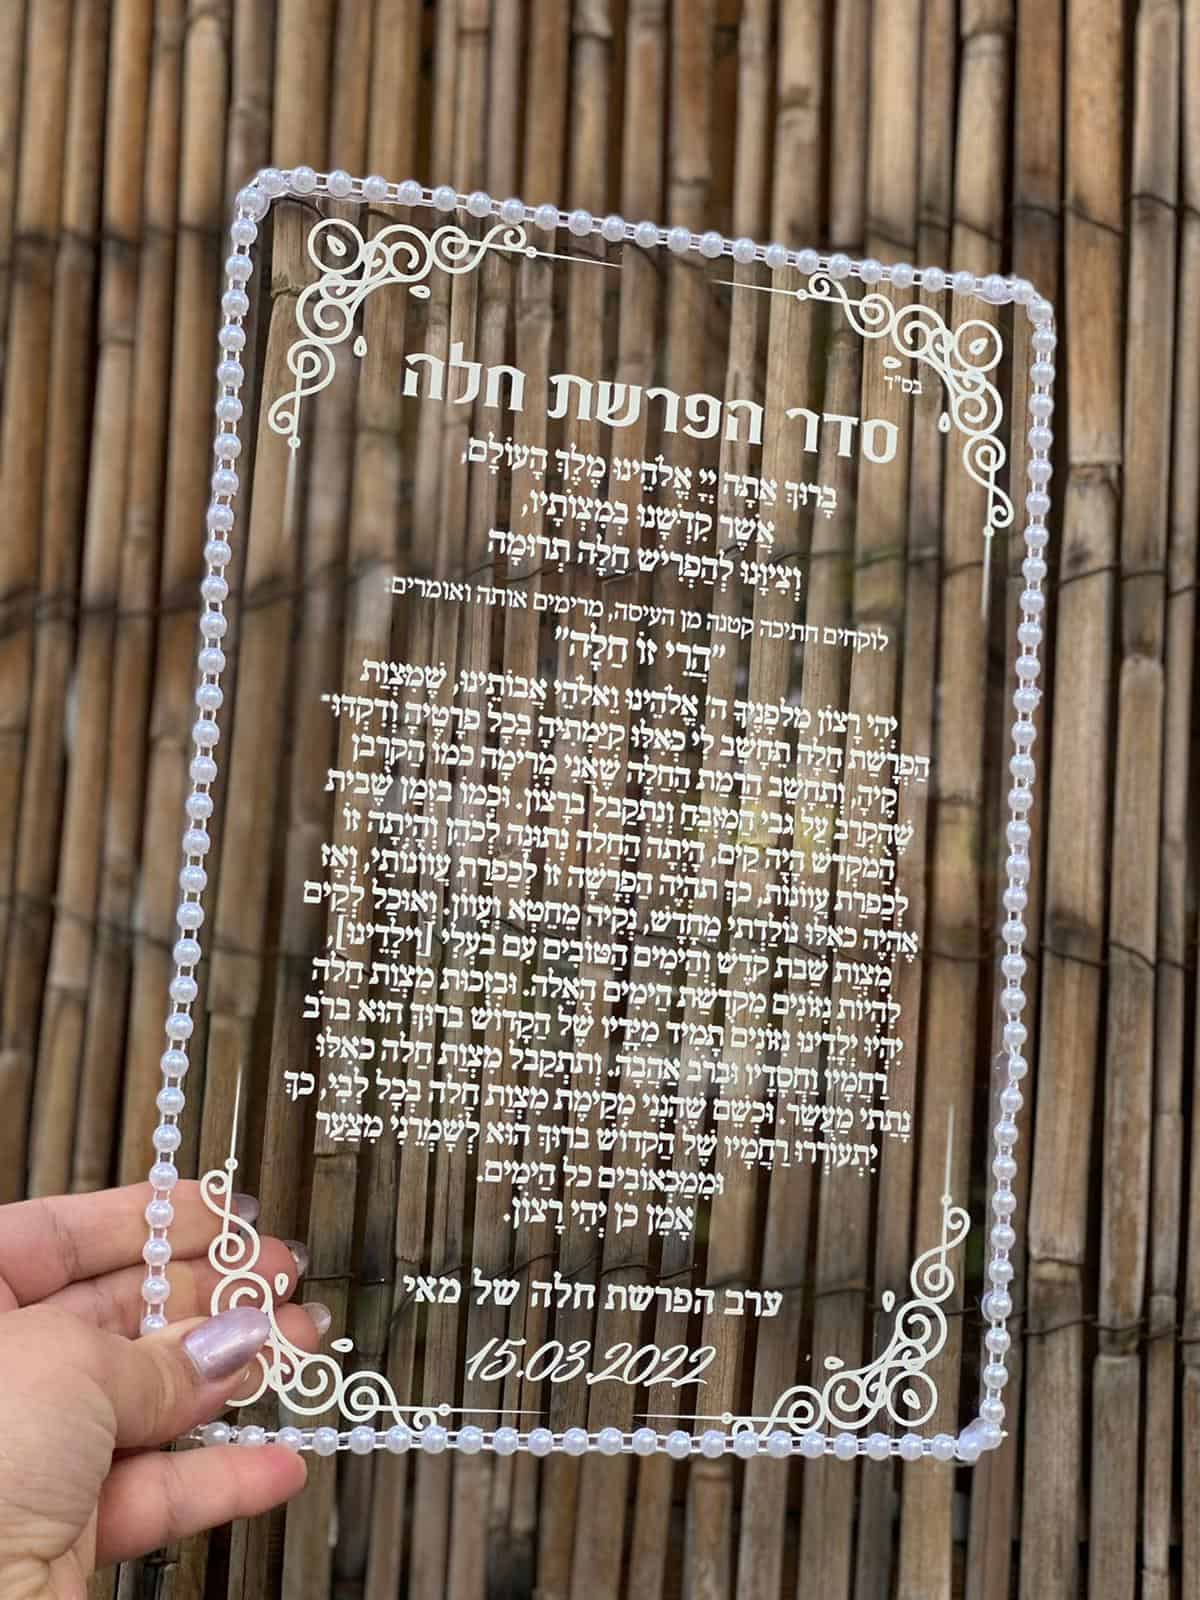 בס"ד
סדר הפרשת חלה
בָּרוּךְ אַתָּה יְיָ אֱלֹהֵינוּ מֶלֶךְ הָעוֹלָם,
אֲשֶׁר קִדְּשָׁנוּ בְּמִצְוֹתָיו,
וְצִיוָּנוּ לְהַפְרִישׁ חַלָּה תְּרוּמָה
לוקחים חתיכה קטנה מן העיסה, מרימים אותה ואומרים:
"הֲרֵי זוֹ חַלָּה"
יְהִי רָצוֹן מִלְּפָנֶיךָ ה' אֱלֹהֵינוּ וֵאלֹהֵי אֲבוֹתֵינוּ, שֶׁמִּצְוַת
הַפְרָשַׁת חַלָּה תֵּחָשֵׁב לִי כְּאִלּוּ קִיַּמְתִּיהָ בְּכָל פְּרָטֶיהָ וְדִקְדּוּ-
קֶיהָ, וְתֵחָשֵׁב הֲרָמַת הַחַלָּה שֶׁאֲנִי מְרִימָה כְּמוֹ הַקָּרְבָּן
שֶׁהֻקְרַב עַל גַּבֵּי הַמִּזְבֵּחַ וְנִתְקַבֵּל בְּרָצוֹן. וּכְמוֹ בִּזְמַן שֶׁבֵּית
הַמִּקְדָּשׁ הָיָה קַיָּם, הָיְתָה הַחַלָּה נְתוּנָה לַכֹּהֵן וְהָיְתָה זוֹ
לְכַפָּרַת עֲווֹנוֹת, כָּךְ תִּהְיֶה הַפְרָשָׁה זוֹ לְכַפָּרַת עֲווֹנוֹתַי, וְאָז
אֶהְיֶה כְּאִלּוּ נוֹלַדְתִּי מֵחָדָשׁ, נְקִיָּה מֵחֵטְא וְעָווֹן. וְאוּכַל לְקַיֵּם
מִצְוַת שַׁבַּת קֹדֶשׁ וְהַיָּמִים הַטּוֹבִים עִם בַּעְלִי [וִילָדֵינוּ],
לִהְיוֹת נִזּוֹנִים מִקְּדֻשַּׁת הַיָּמִים הָאֵלֶּה. וּבִזְכוּת מִצְוַת חַלָּה
יִהְיוּ יְלָדֵינוּ נִזּוֹנִים תָּמִיד מִיָּדָיו שֶׁל הַקָּדוֹשׁ בָּרוּךְ הוּא בְּרֹב
רַחֲמָיו וַחֲסָדָיו וּבְרֹב אַהֲבָה. וְתִתְקַבֵּל מִצְוַת חַלָּה כְּאִלּוּ
נָתַתִּי מַעֲשֵׂר. וּכְשֵׁם שֶׁהִנְנִי מְקַיֶּמֶת מִצְוַת חַלָּה בְּכָל לִבִּי, כָּךְ
יִתְעוֹרְרוּ רַחֲמָיו שֶׁל הַקָּדוֹשׁ בָּרוּךְ הוּא לְשָׁמְרֵנִי מִצַּעַר
וּמִמַּכְאוֹבִים כָּל הַיָּמִים.
אָמֵן כֵּן יְהִי רָצוֹן.
ערב הפרשת חלה של מאי
15.03.2022